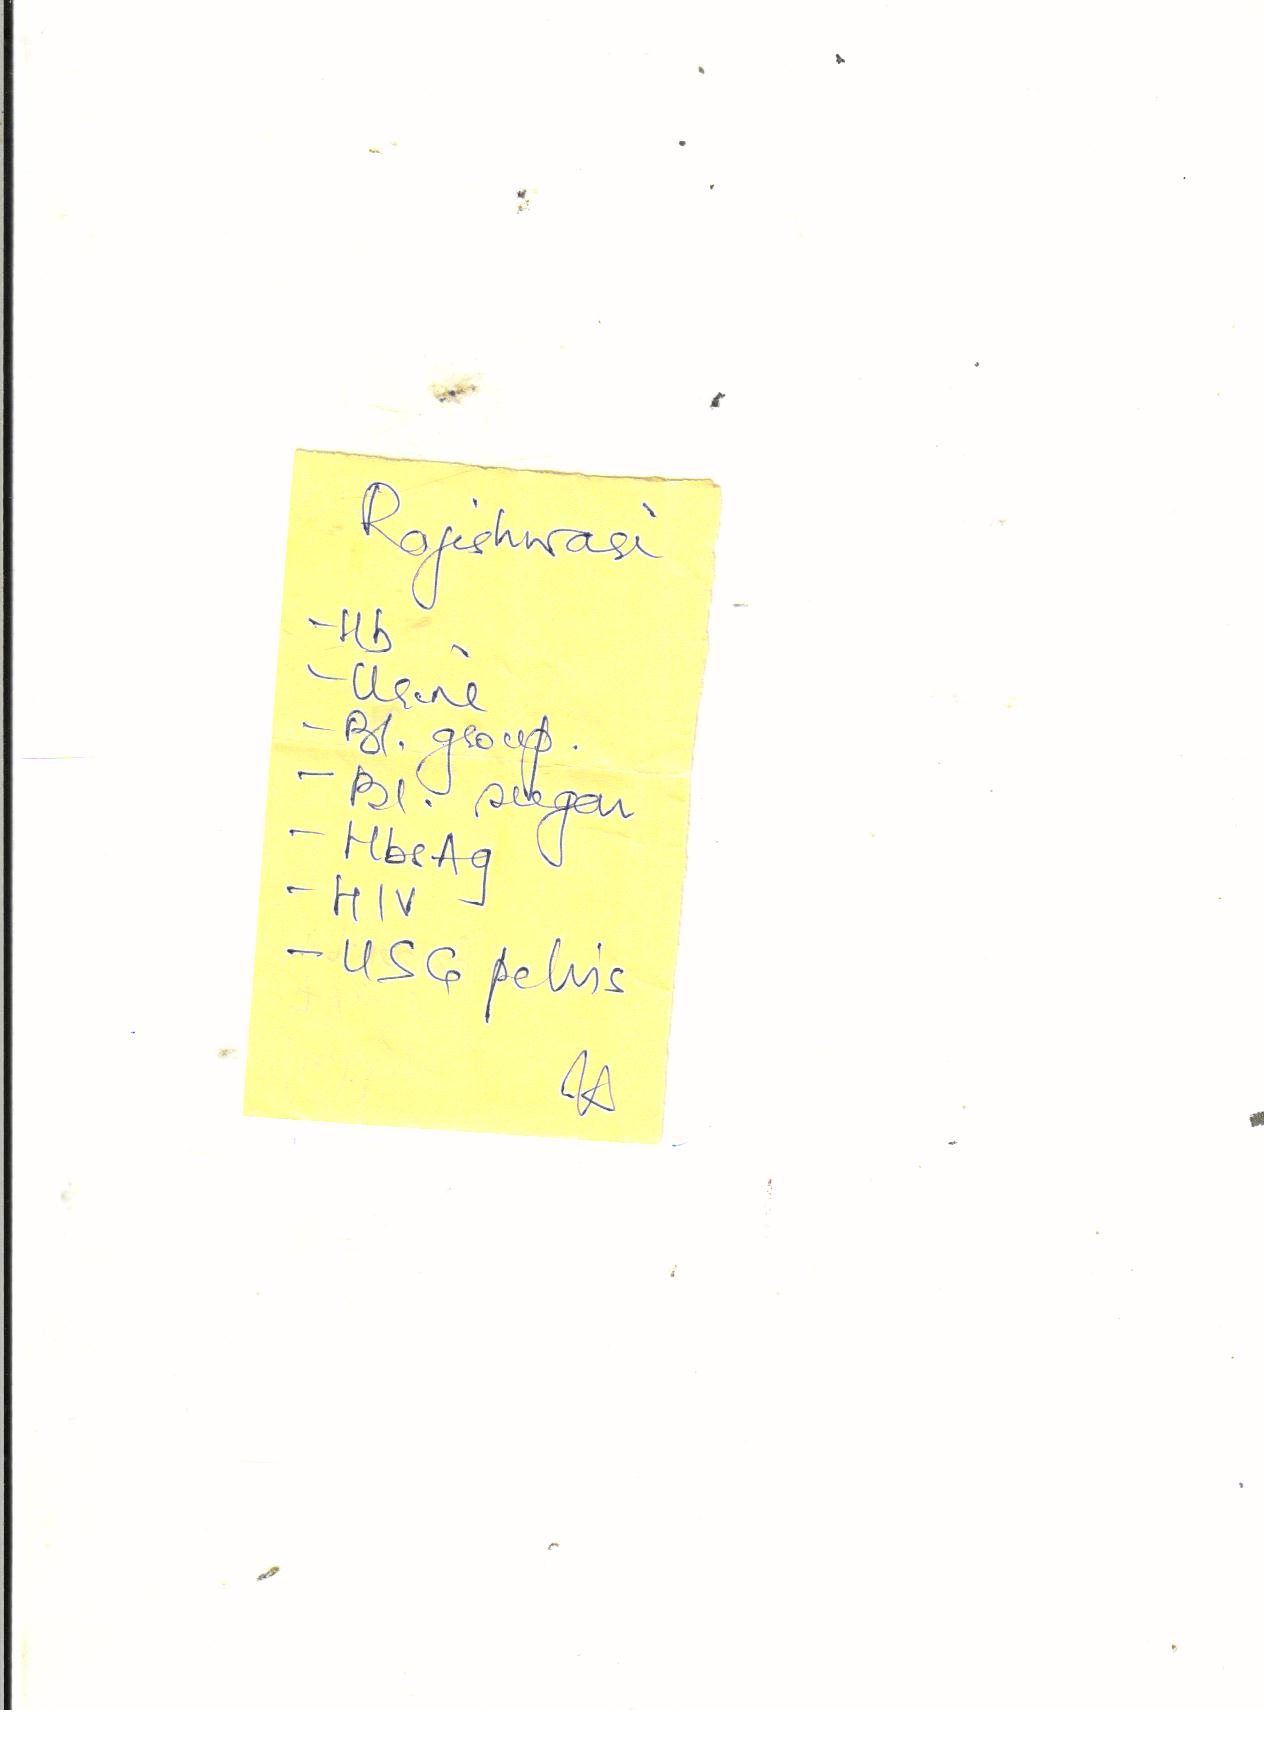 Rajeshwari
- Hb
- Urine
- Bl. group.
- Bl. sugar
- HbsAg
- HIV
- USG pelvis